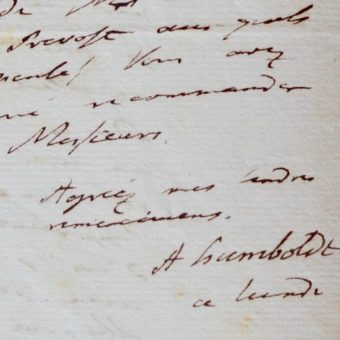 de M
Prevost aux quels
Vous avez
recommander
Messieurs.
Agréez mes tendres
remercimens.
A Humboldt
ce lundi